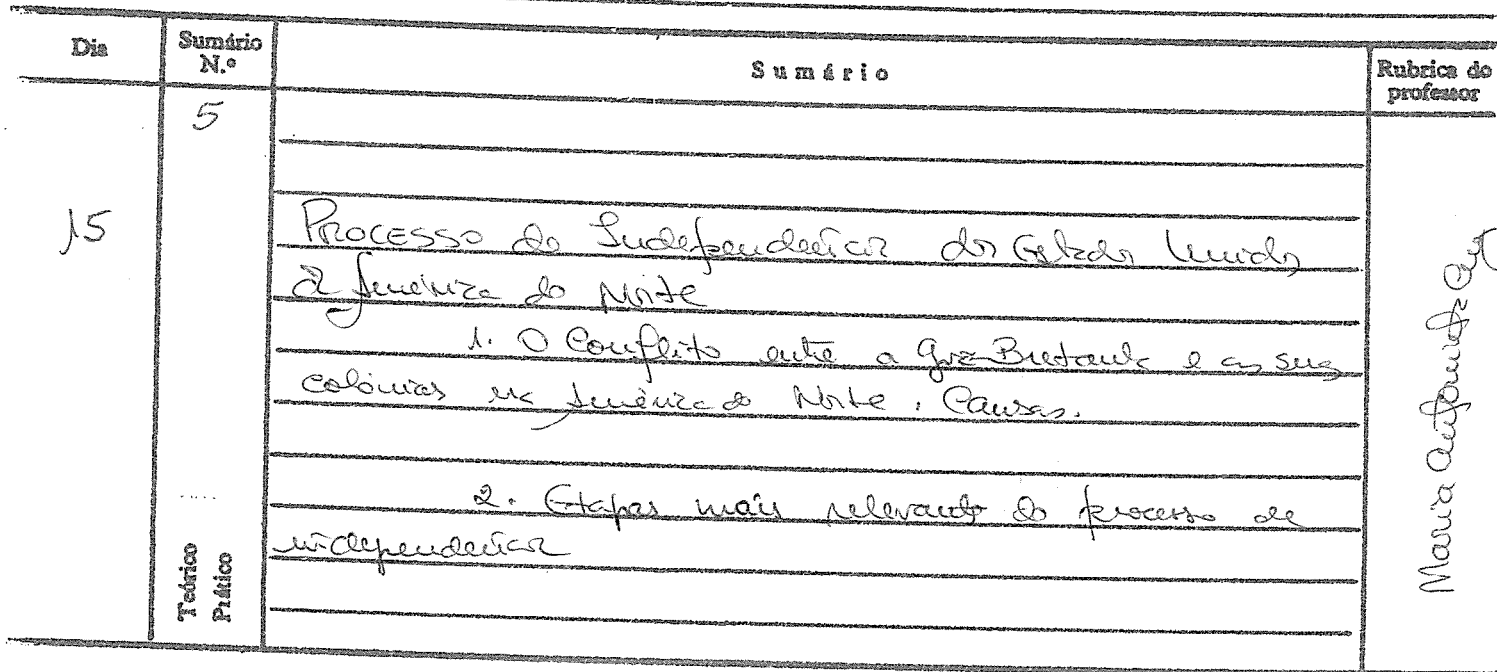 Dia
Sumário N.º
Sumário
Rubrica do professor
5
15
Processo de Independência dos Estados Unidos
da América do Norte
1. O Conflito entre a Grã-Bretanha e as suas
colónias na América do Norte. Causas.
2. Etapas mais relevantes do processo de
independência
Teórico
Prático
Maria